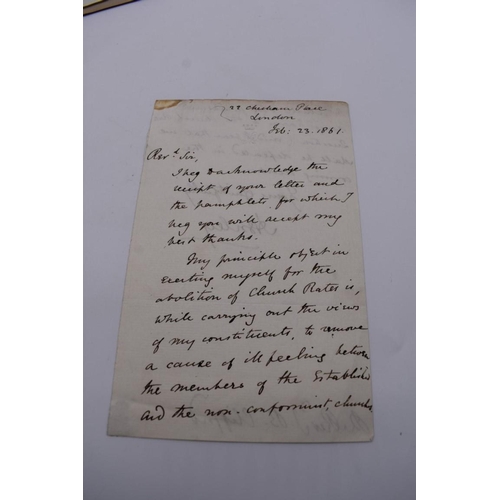 22 Chesham Place
London
Feb: 23. 1861.
Revd. Sir,
I beg to acknowledge the
receipt of your letter and
the pamphlets, for which I
beg you will accept my
best thanks.
My principle object in
exerting myself for the
abolition of Church Rates is,
while carrying out the views
of my constituents, to remove
a cause of ill feeling between
the members of the Establish
and the non-conformist, church